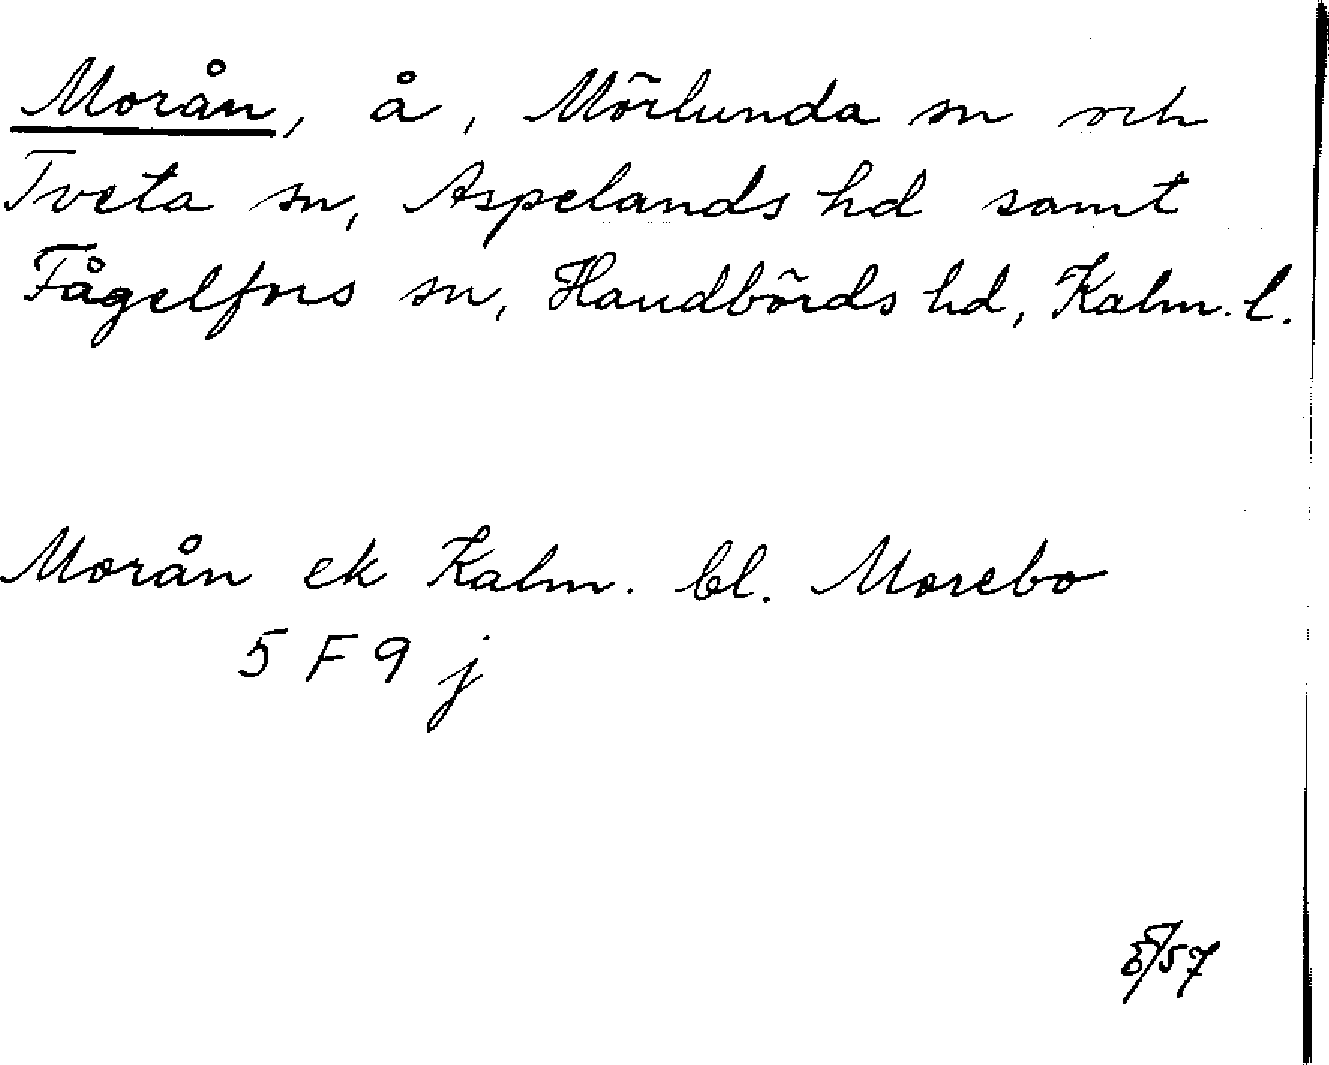 Morån, å, Mörlunda sn och
Tveta sn, Aspelands hd samt
Fågelfors sn, Handbörds hd, Kalm. l.
Morån ek Kalm. bl. Morebo
5 F 9 j